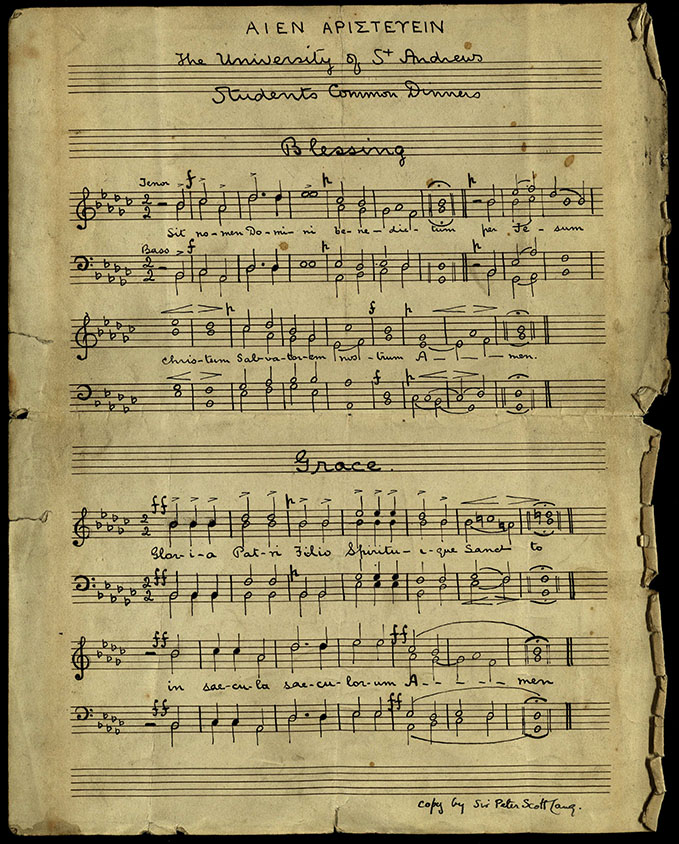 ΑΙΕΝ ΑΡΙΣΤΕΥΕΙΝ
The University of St Andrews
Students Common Dinners
Blessing
Tenor f p p
Sit no-men Do-mi-ni be-ne-dic-tum per Je-sum
Bass f p p
p f p
Chris-tum Sal-va-tor-em nos-trum A - - - men.
p f p
Grace.
ff p
Glor-i-a Pat-ri Filio Spiritu-i-que Sanct to
ff p
ff ff
in sae-cu-la sae-cu-lor-um A - - - - men
ff ff
copy by Sir Peter Scott Lang.